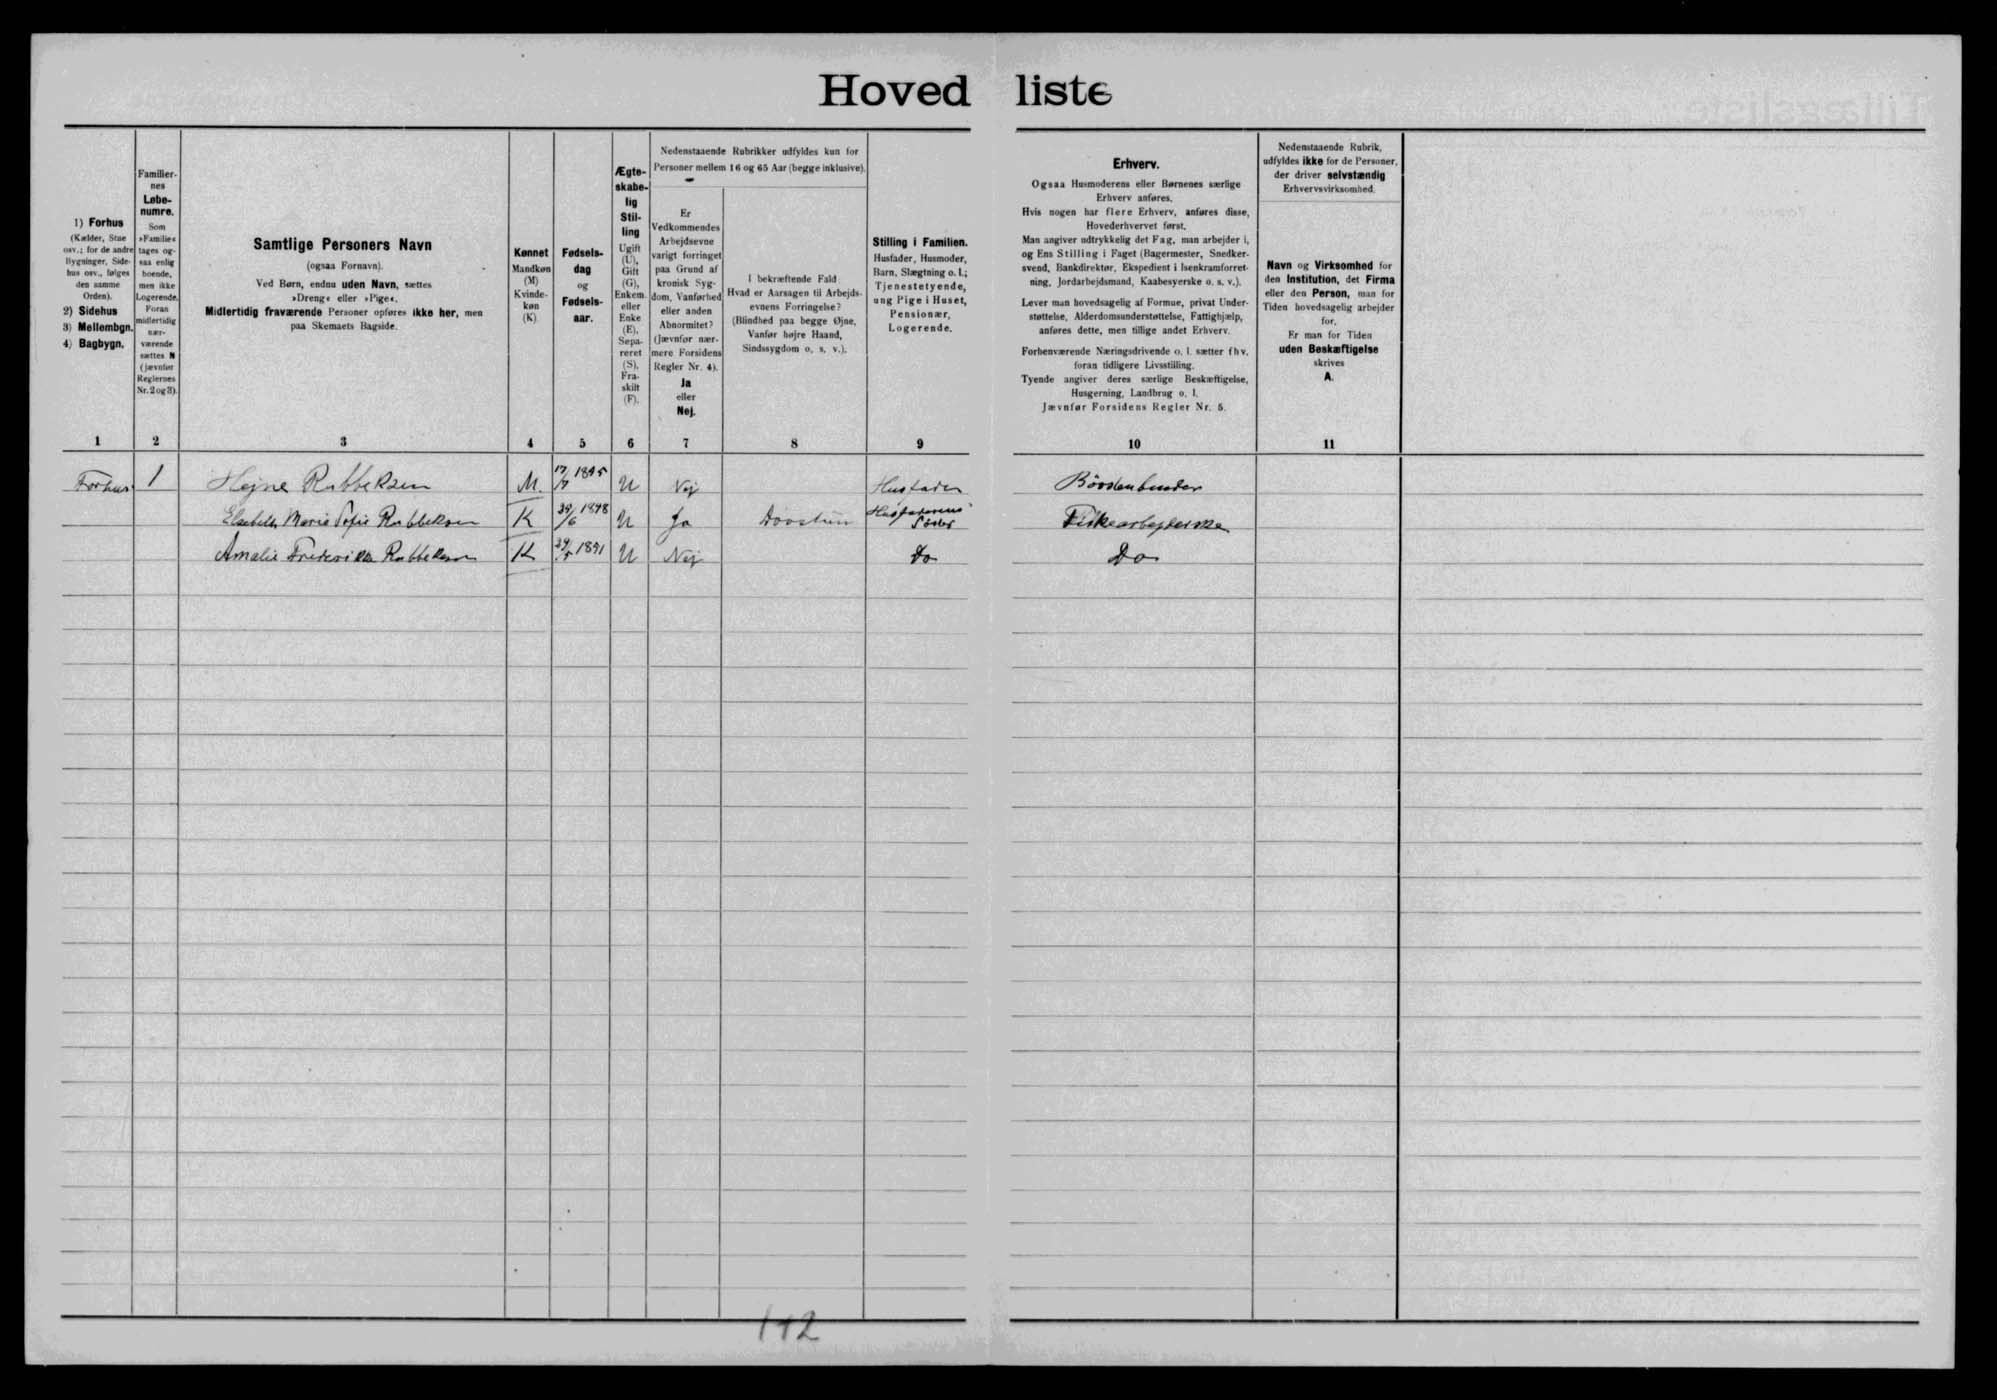 Hovedliste
1) Forhus
(Kælder, Stue
osv.; for de andre
Bygninger, Side-
hus osv., følges
den samme
Orden).
2) Sidehus
3) Mellembgn.
4) Bagbygn.
Familier-
nes
Løbe-
numre.
Som
»Familie«
tages og-
saa enlig
boende,
men ikke
Logerende.
Foran
midlertidig
nær-
værende
sættes N
(jævnfør
Reglernes
Nr. 2 og 3).
Samtlige Personers Navn
(ogsaa Fornavn).
Ved Børn, endnu uden Navn, sættes
»Dreng« eller »Pige«.
Midlertidig fraværende Personer opføres ikke her, men
paa Skemaets Bagside.
Kønnet
Mandkøn
(M)
Kvinde-
køn
(K).
Fødsels-
dag
og
Fødsels-
aar.
Ægte-
skabe-
lig
Stil-
ling
Ugift
(U),
Gift
(G),
Enkem.
eller
Enke
(E),
Sepa-
reret
(S),
Fra-
skilt
(F).
Nedenstaaende Rubrikker udfyldes kun for
Personer mellem 16 og 65 Aar (begge inklusive).
Er
Vedkommendes
Arbejdsevne
varigt forringet
paa Grund af
kronisk Syg-
dom, Vanførhed
eller anden
Abnormitet?
(Jævnfør nær-
mere Forsidens
Regler Nr. 4).
Ja
eller
Nej.
I bekræftende Fald
Hvad er Aarsagen til Arbejds-
evnens Forringelse?
(Blindhed paa begge Øjne,
Vanfør højre Haand,
Sindssygdom o. s. v.).
Stilling i Familien.
Husfader, Husmoder,
Barn, Slægtning o. l.;
Tjenestetyende,
ung Pige i Huset,
Pensionær,
Logerende.
Erhverv.
Ogsaa Husmoderens eller Børnenes særlige
Erhverv anføres.
Hvis nogen har flere Erhverv, anføres disse,
Hovederhvervet først.
Man angiver udtrykkelig det Fag, man arbejder i,
og Ens Stilling i Faget (Bagermester, Snedker-
svend, Bankdirektør, Ekspedient i Isenkramforret-
ning, Jordarbejdsmand, Kaabesyerske o. s. v.).
Lever man hovedsagelig af Formue, privat Under-
støttelse, Alderdomsunderstøttelse, Fattighjælp,
anføres dette, men tillige andet Erhverv.
Forhenværende Næringsdrivende o. l. sætter fhv.
foran tidligere Livsstilling.
Tyende angiver deres særlige Beskæftigelse,
Husgerning, Landbrug o. l.
Jævnfør Forsidens Regler Nr. 5.
Nedenstaaende Rubrik,
udfyldes ikke for de Personer,
der driver selvstændig
Erhvervsvirksomhed.
Navn og Virksomhed for
den Institution, det Firma
eller den Person, man for
Tiden hovedsagelig arbejder
for.
Er man for Tiden
uden Beskæftigelse
skrives
A.
1 2 3 4 5 6 7 8 9 10 11
Forhus 1 Hejne Rabbeksen M. U Nej Husfader Börstenbinder
Marie Sofie Rabbeksen K U Ja Dovstum Husfaderens Söster
Amalie Frederikke Rabbeksen K 1891 U Nej Do Do
142